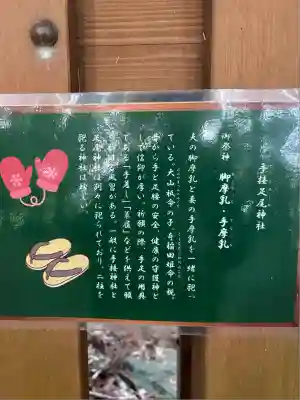 手接足尾神社
御祭神　脚摩乳・手摩乳
夫の脚摩乳と妻の手摩乳を一緒に祀っ
ている。大山祇命の子、奇稲田姫命の親。
昔から手と足腰の安全、健康の守護神と
して信仰が厚い。祈願の際、手足の用具
である「手差し」「草履」などを供えて願
風習がある。一般に手接神社と
足尾神社は別々に祀られており、二柱を
祀る神社は珍しい。